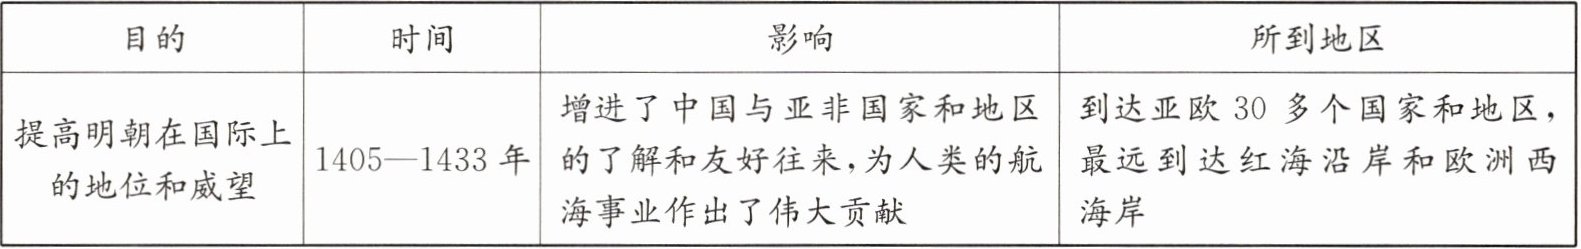 目的 时间 影响 所到地区
提高明朝在国际上
的地位和威望
1405—1433 年
增进了中国与亚非国家和地区
的了解和友好往来,为人类的航
海事业作出了伟大贡献
到达亚欧 30 多个国家和地区,
最远到达红海沿岸和欧洲西
海岸